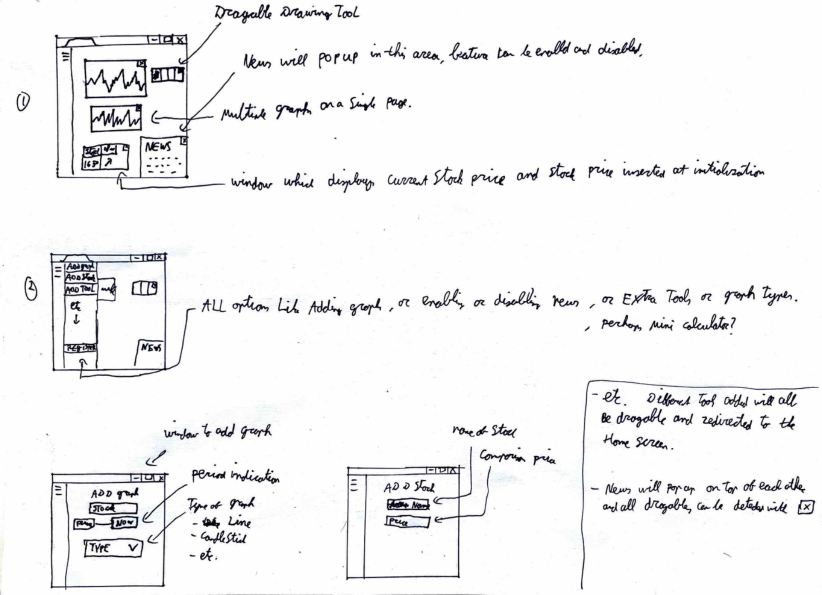 Dragable Drawing Tool
News will pop up in this area, feature can be enabled and disabled.
①
Multiple graphs on a single page.
NEWS
window which displays current Stock price and stock price inserted at initialization
②
ADD Stock
ADD TOOL
etc
NEWS
ALL options Like Adding graph, or enabling or disabling news, or Extra Tools or graph types.
, perhaps mini calculator?
window to add graph
period indication
Type of graph
- Line
- CandleStick
- etc.
ADD graph
STOCK
Now
TYPE
name of Stock
Comparison price
ADD Stock
Price
- etc. Different Tool added will all
Be dragable and redirected to the
Home screen.
- News will pop up on Top of each other
and all dragable, can be deleted with [X]